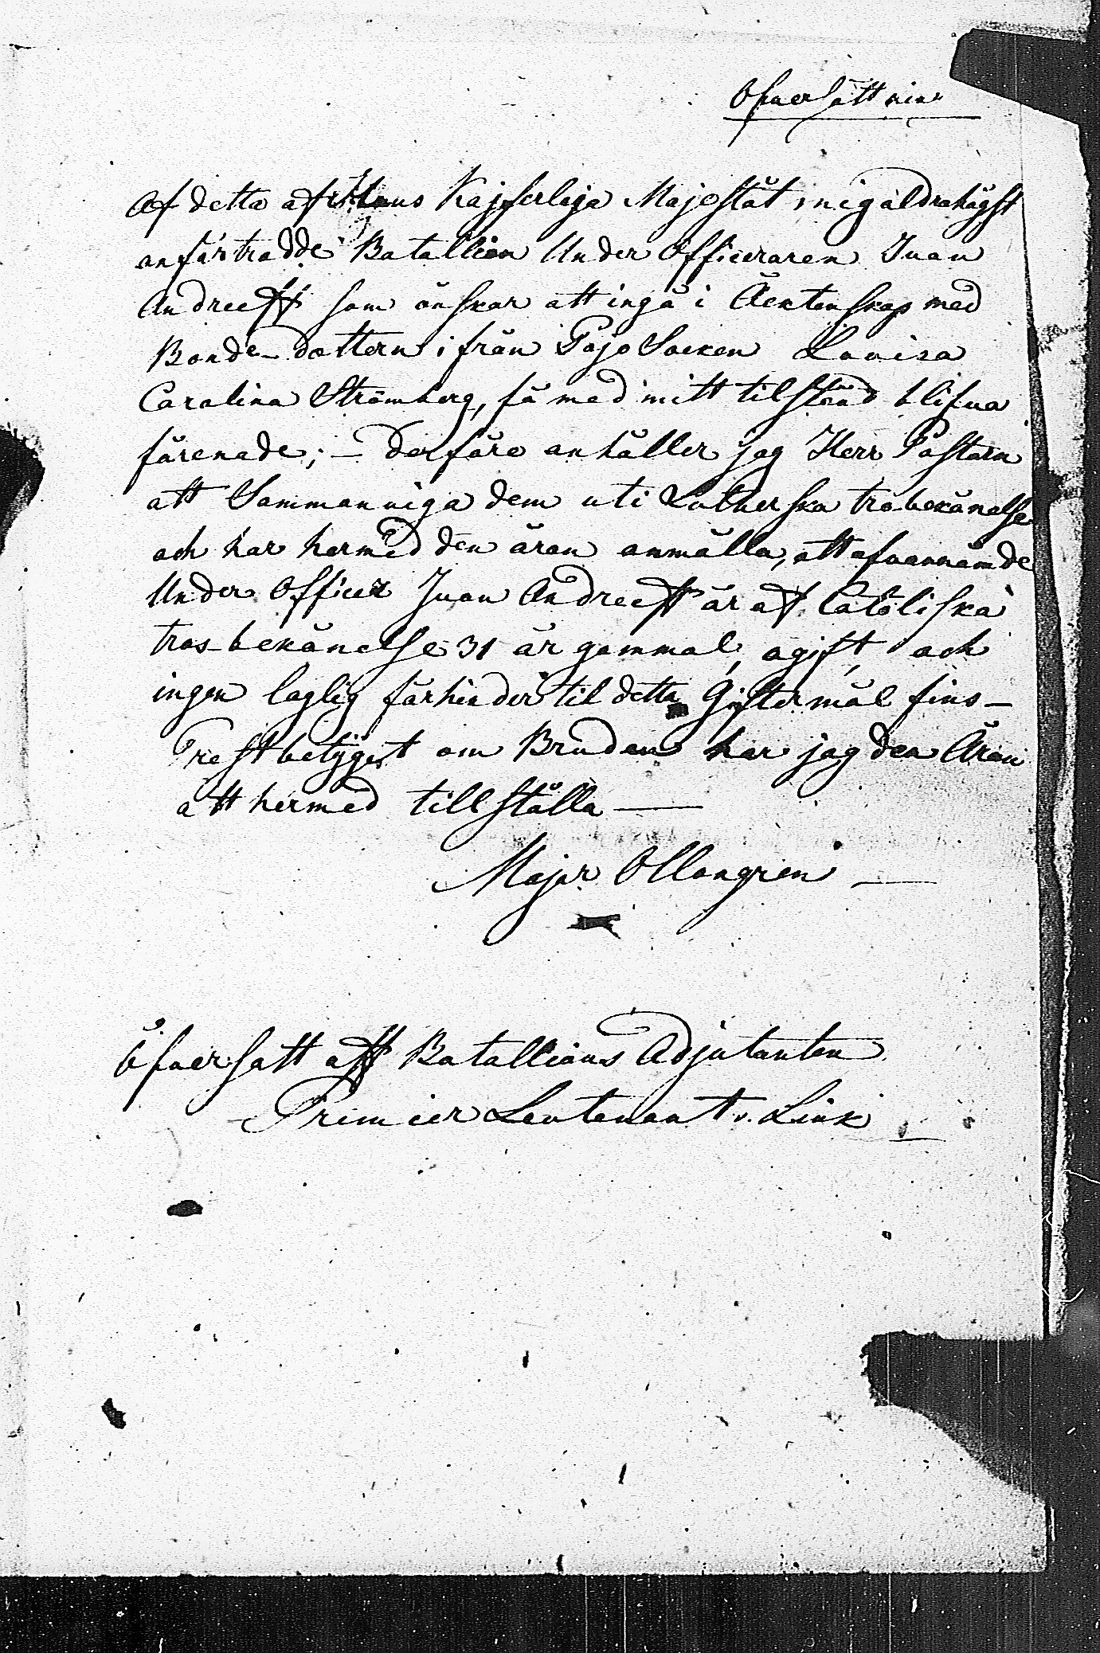 Öfversättning
Af detta af Hans Kejserliga Majestät mig aldrahögst
anförtrodde Batallion Under Officeraren Ivan
Andreeff som önskar att ingå i Äcktenskap med
Bonde-dottern ifrån Pojo Socken Lovisa
Carolina Strömberg, få med mitt tilstånd blifva
förenade; – Derföre anhåller jag Herr Pastorn
att Sammanviga dem uti Lutherska trobekänelse
och har hermed den äran anmälla, att ofvannämde
Under Officer Ivan Andreeff är af Catoliska
tros-bekänelse 31 år gammal, ogift, och
ingen laglig förhinder til detta Giftermål fins –
Prestbetyget om Bruden har jag den Äran
att hermed tillställa —
Major Ollongren —
Öfversatt aff Batallions Adjutanten
Premier Leutenant v. Link